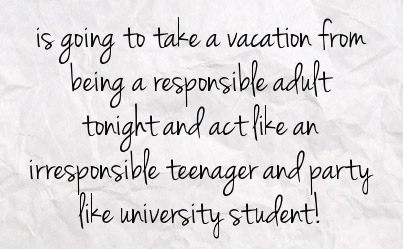 is going to take a vacation from
being a responsible adult
tonight and act like an
irresponsible teenager and party
like university student!